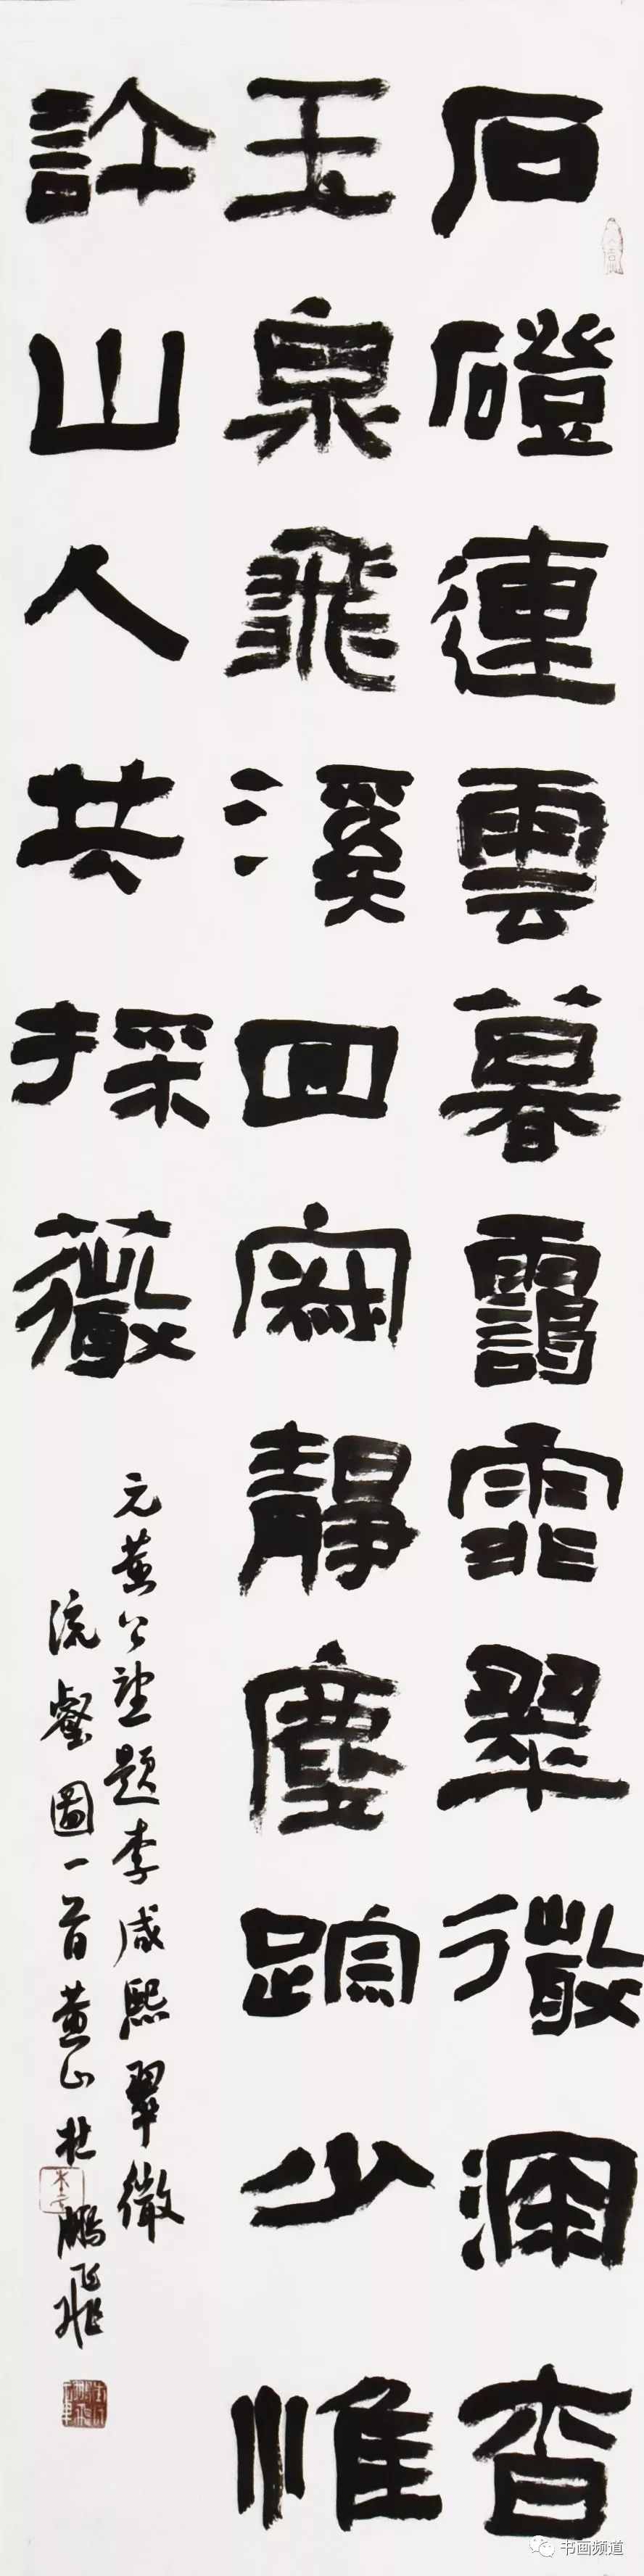 石磴連雲暮靄霏翠微深杳
玉泉飛溪回寂靜塵踪少惟
許山人共採薇
元黄公望題李咸熙翠微
流壑圖一首黄山杜鵬飛
书画频道